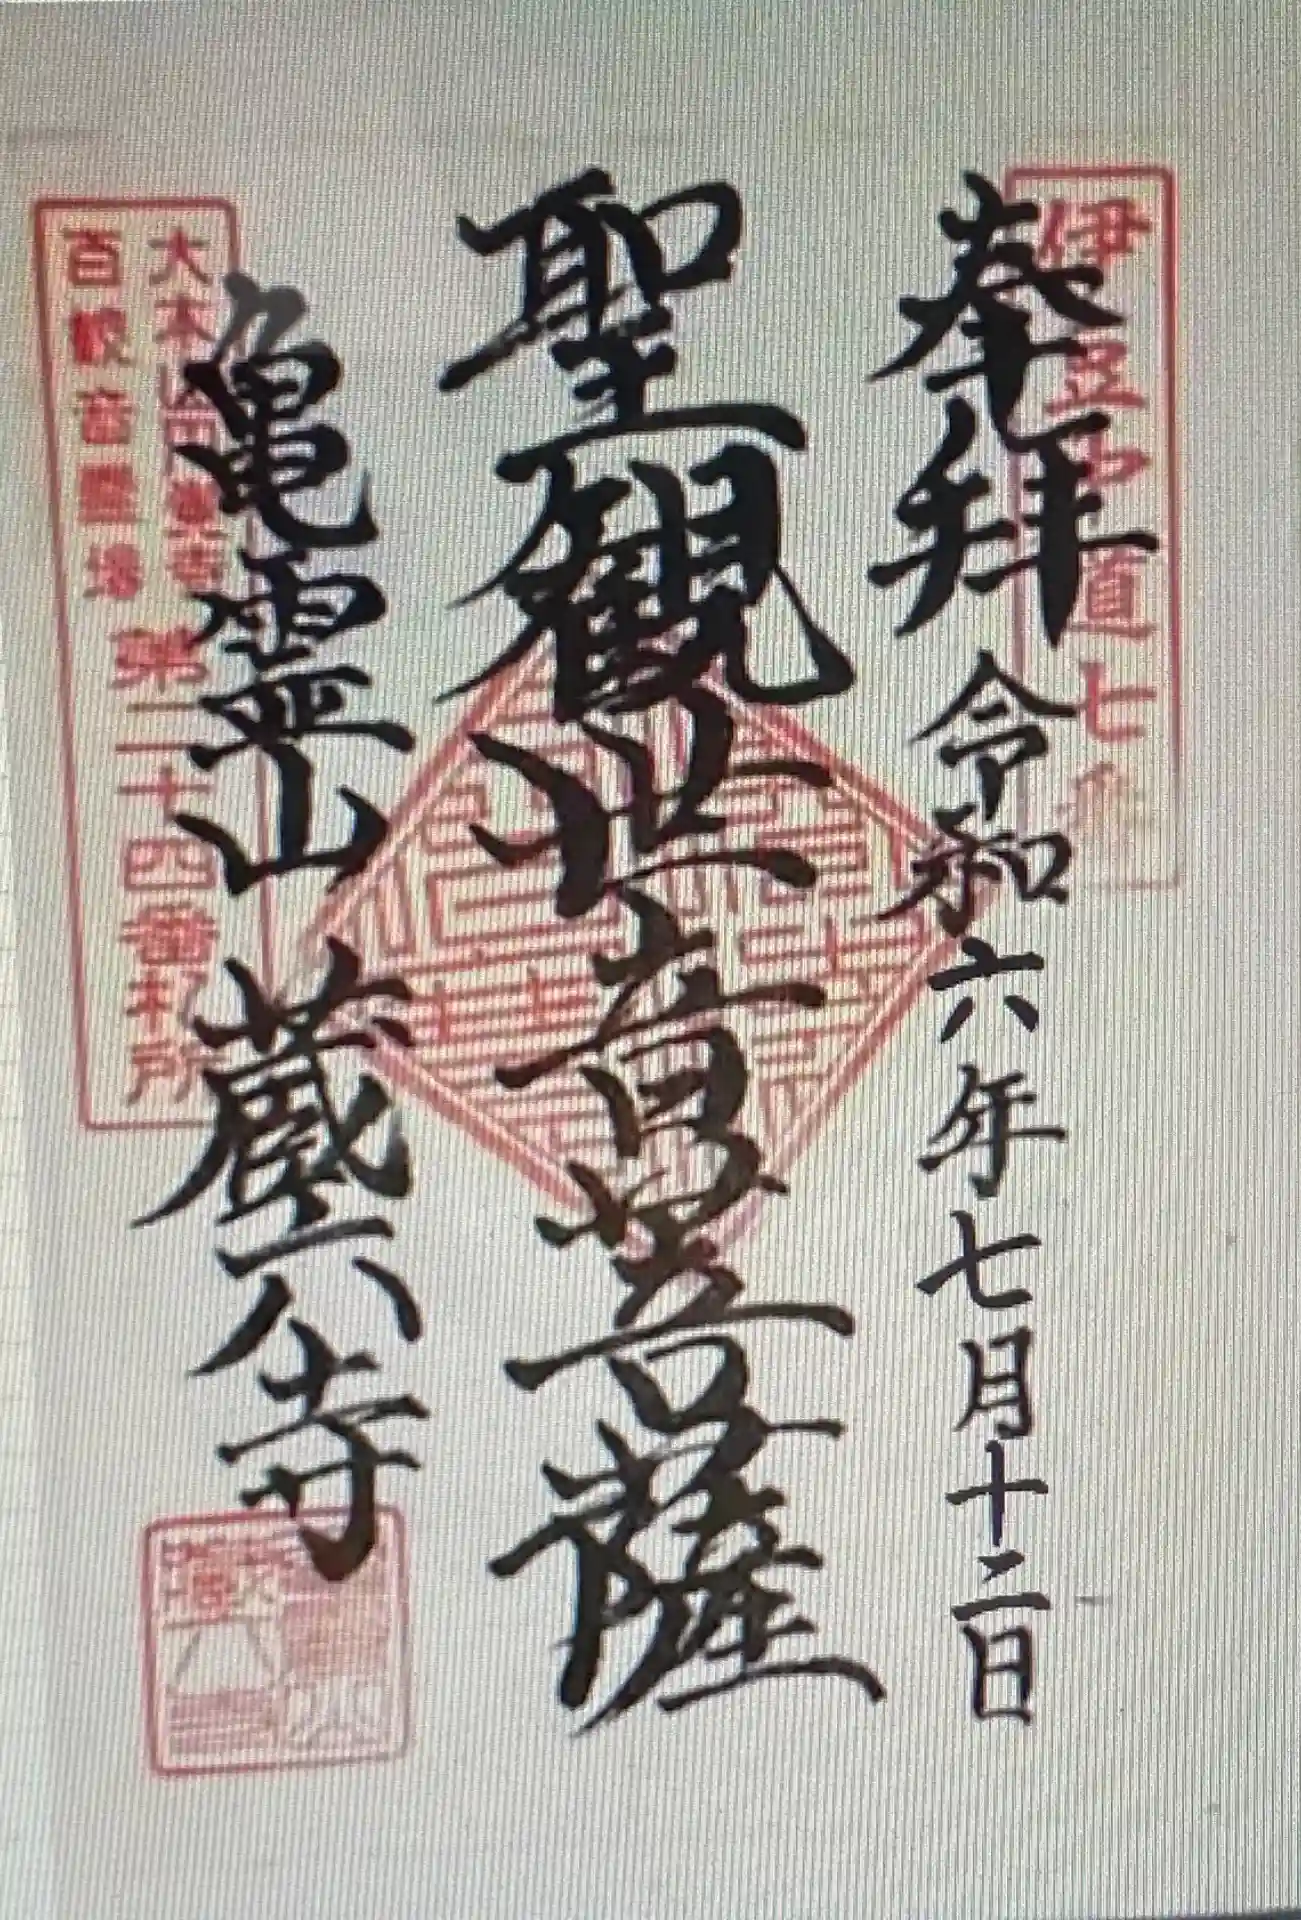 伊豆中道七
奉拝 令和六年七月十二日
聖観世音菩薩
亀霊山 蔵六寺
大本山円覚寺
百観音霊場
第二十四番札所